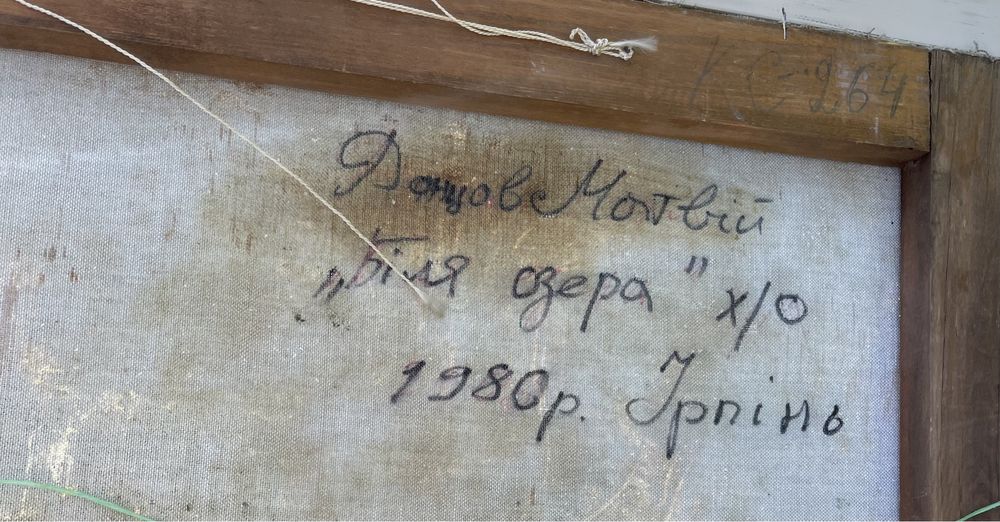 КС-264
Донцов Матвій
„Біля озера" х/о
1980р. Ірпінь